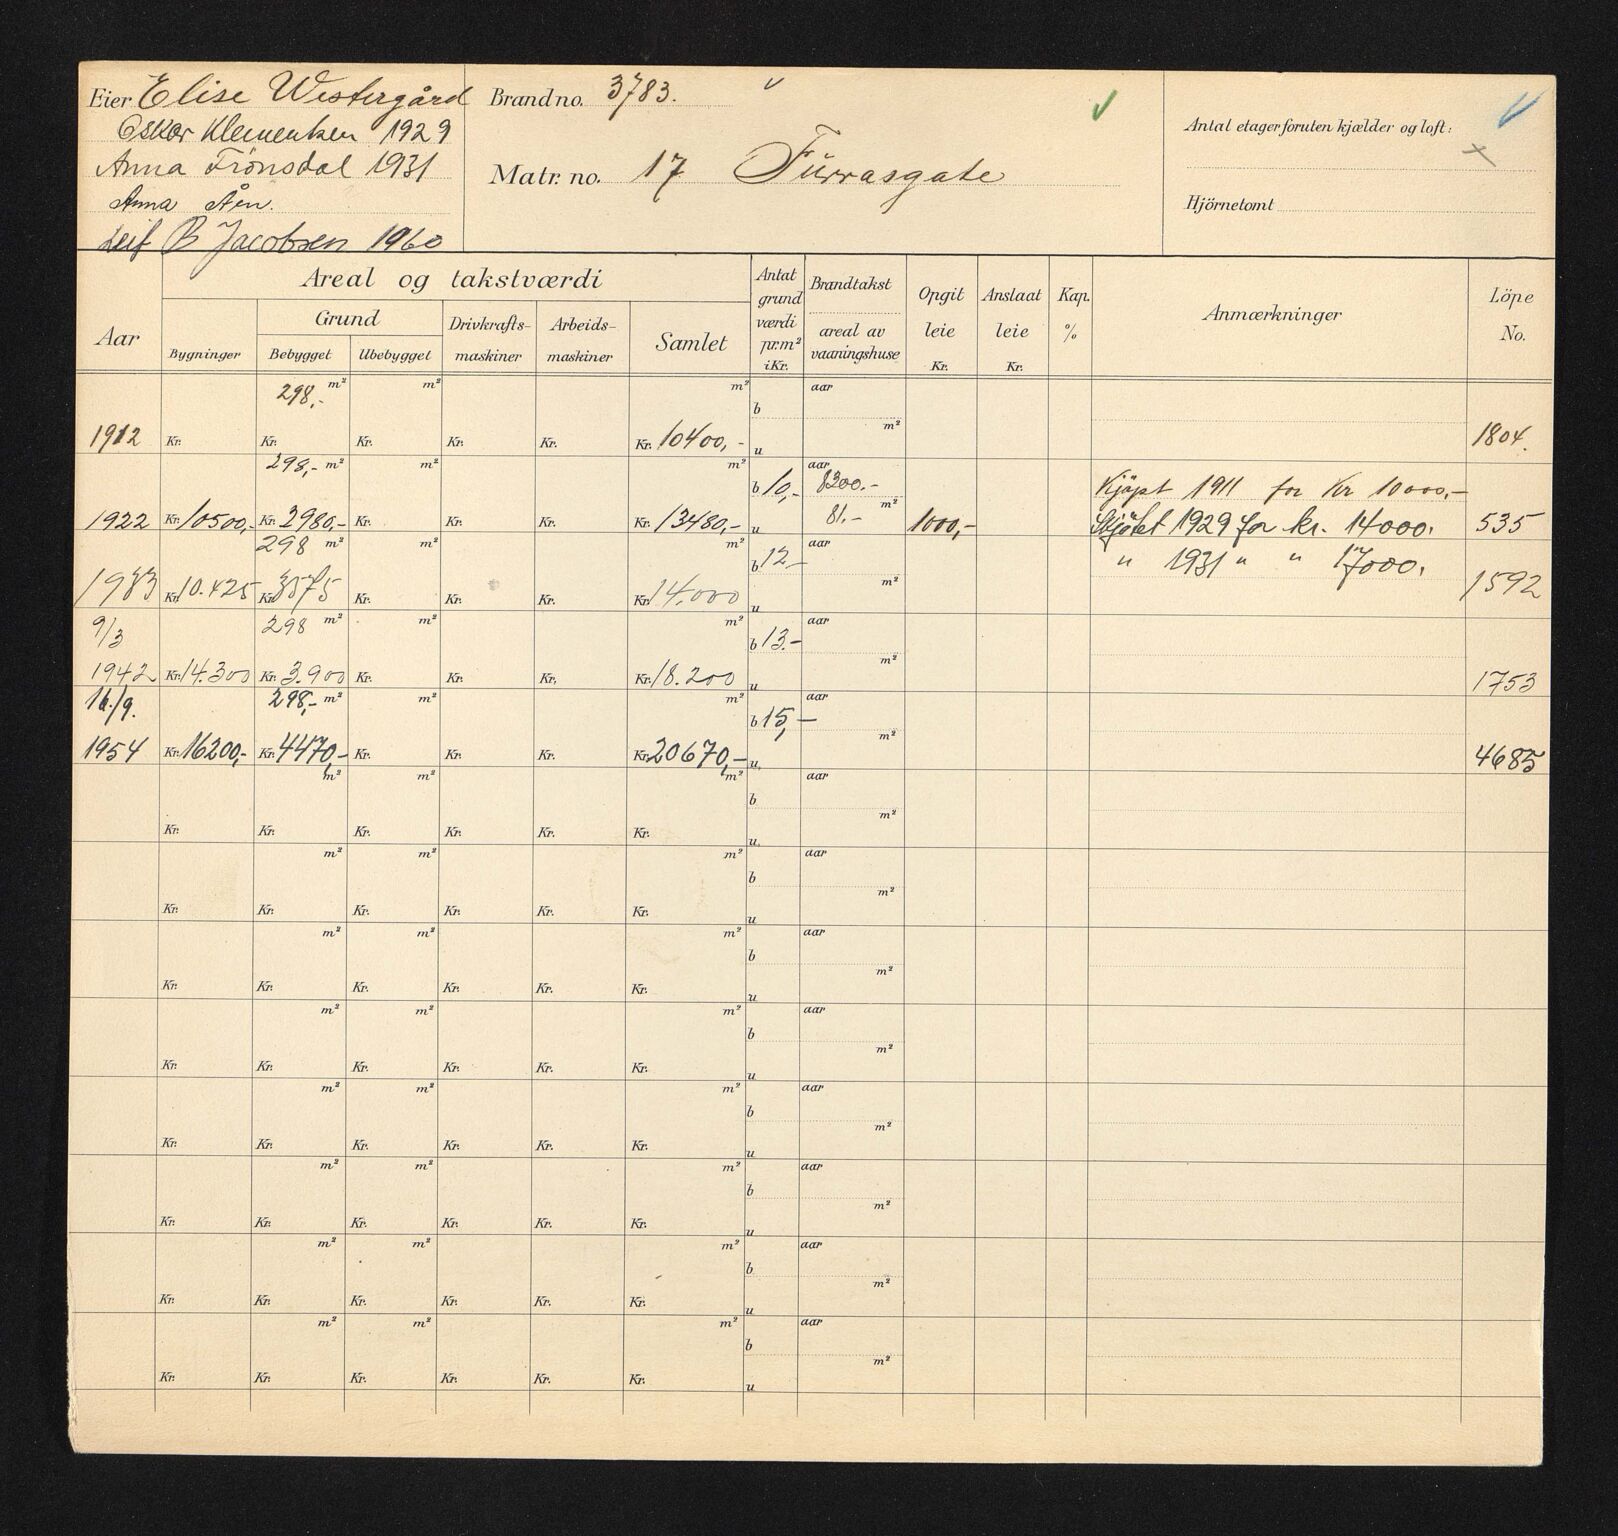 Eier Elise Westergård
Oskar Klementsen 1929
Anna Frönsdal 1931
Anna Åen.
Leif B Jacobsen 1960
Brand no. 3783.
Matr. no. 17 Fürrasgate
Antal etager foruten kjælder og loft:
Hjörnetomt
Aar
Areal og takstværdi
Bygninger
Grund
Bebygget
Ubebygget
Drivkrafts-
maskiner
Arbeids-
maskiner
Samlet
Antat
grund
værdi
pr.m²
i Kr.
Brandtakst
areal av
vaaningshuse
Opgit
leie
Kr.
Anslaat
leie
Kr.
Kap.
%
Anmærkninger
Löpe
No.
298,- m² m² m² aar
b
m²
1912 Kr. Kr. Kr. Kr. Kr. Kr. 10400,- u 1804.
298,- m² m² m² aar
b 10,- 8300.- Kjöpt 1911 for Kr 10000,-
m²
1922 Kr. 10500,- Kr. 2980,- Kr. Kr. Kr. Kr. 13480,- u 81.- 1000,- Skjötet 1929 for kr. 14000. 535
298 m² m² m² aar
b 12,- " 1931 " " 17000.
m²
1933 Kr. 10.425 Kr. 3575 Kr. Kr. Kr. Kr. 14.000 u 1592
9/3 298 m² m² m² aar
b 13.-
m²
1942 Kr. 14.300 Kr. 3.900 Kr. Kr. Kr. Kr. 18.200 u 1753
16./9. 298,- m² m² m² aar
b 15,-
m²
1954 Kr. 16200,- Kr. 4470,- Kr. Kr. Kr. Kr. 20670,- u 4685
m² m² m² aar
b
m²
Kr. Kr. Kr. Kr. Kr. Kr. u
m² m² m² aar
b
m²
Kr. Kr. Kr. Kr. Kr. Kr. u
m² m² m² aar
b
m²
Kr. Kr. Kr. Kr. Kr. Kr. u
m² m² m² aar
b
m²
Kr. Kr. Kr. Kr. Kr. Kr. u
m² m² m² aar
b
m²
Kr. Kr. Kr. Kr. Kr. Kr. u
m² m² m² aar
b
m²
Kr. Kr. Kr. Kr. Kr. Kr. u
m² m² m² aar
b
m²
Kr. Kr. Kr. Kr. Kr. Kr. u
m² m² m² aar
b
m²
Kr. Kr. Kr. Kr. Kr. Kr. u